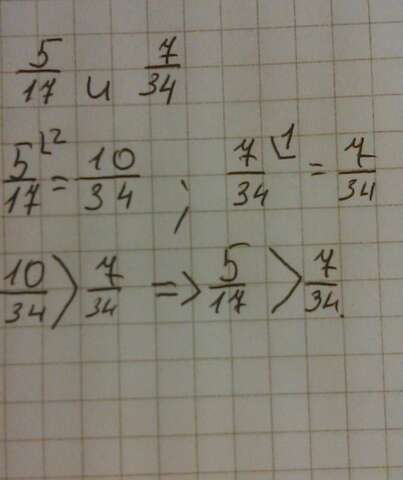 5/17 и 7/34
5/17 ⌊2 = 10/34 ; 7/34 ⌊1 = 7/34
10/34 > 7/34 => 5/17 > 7/34